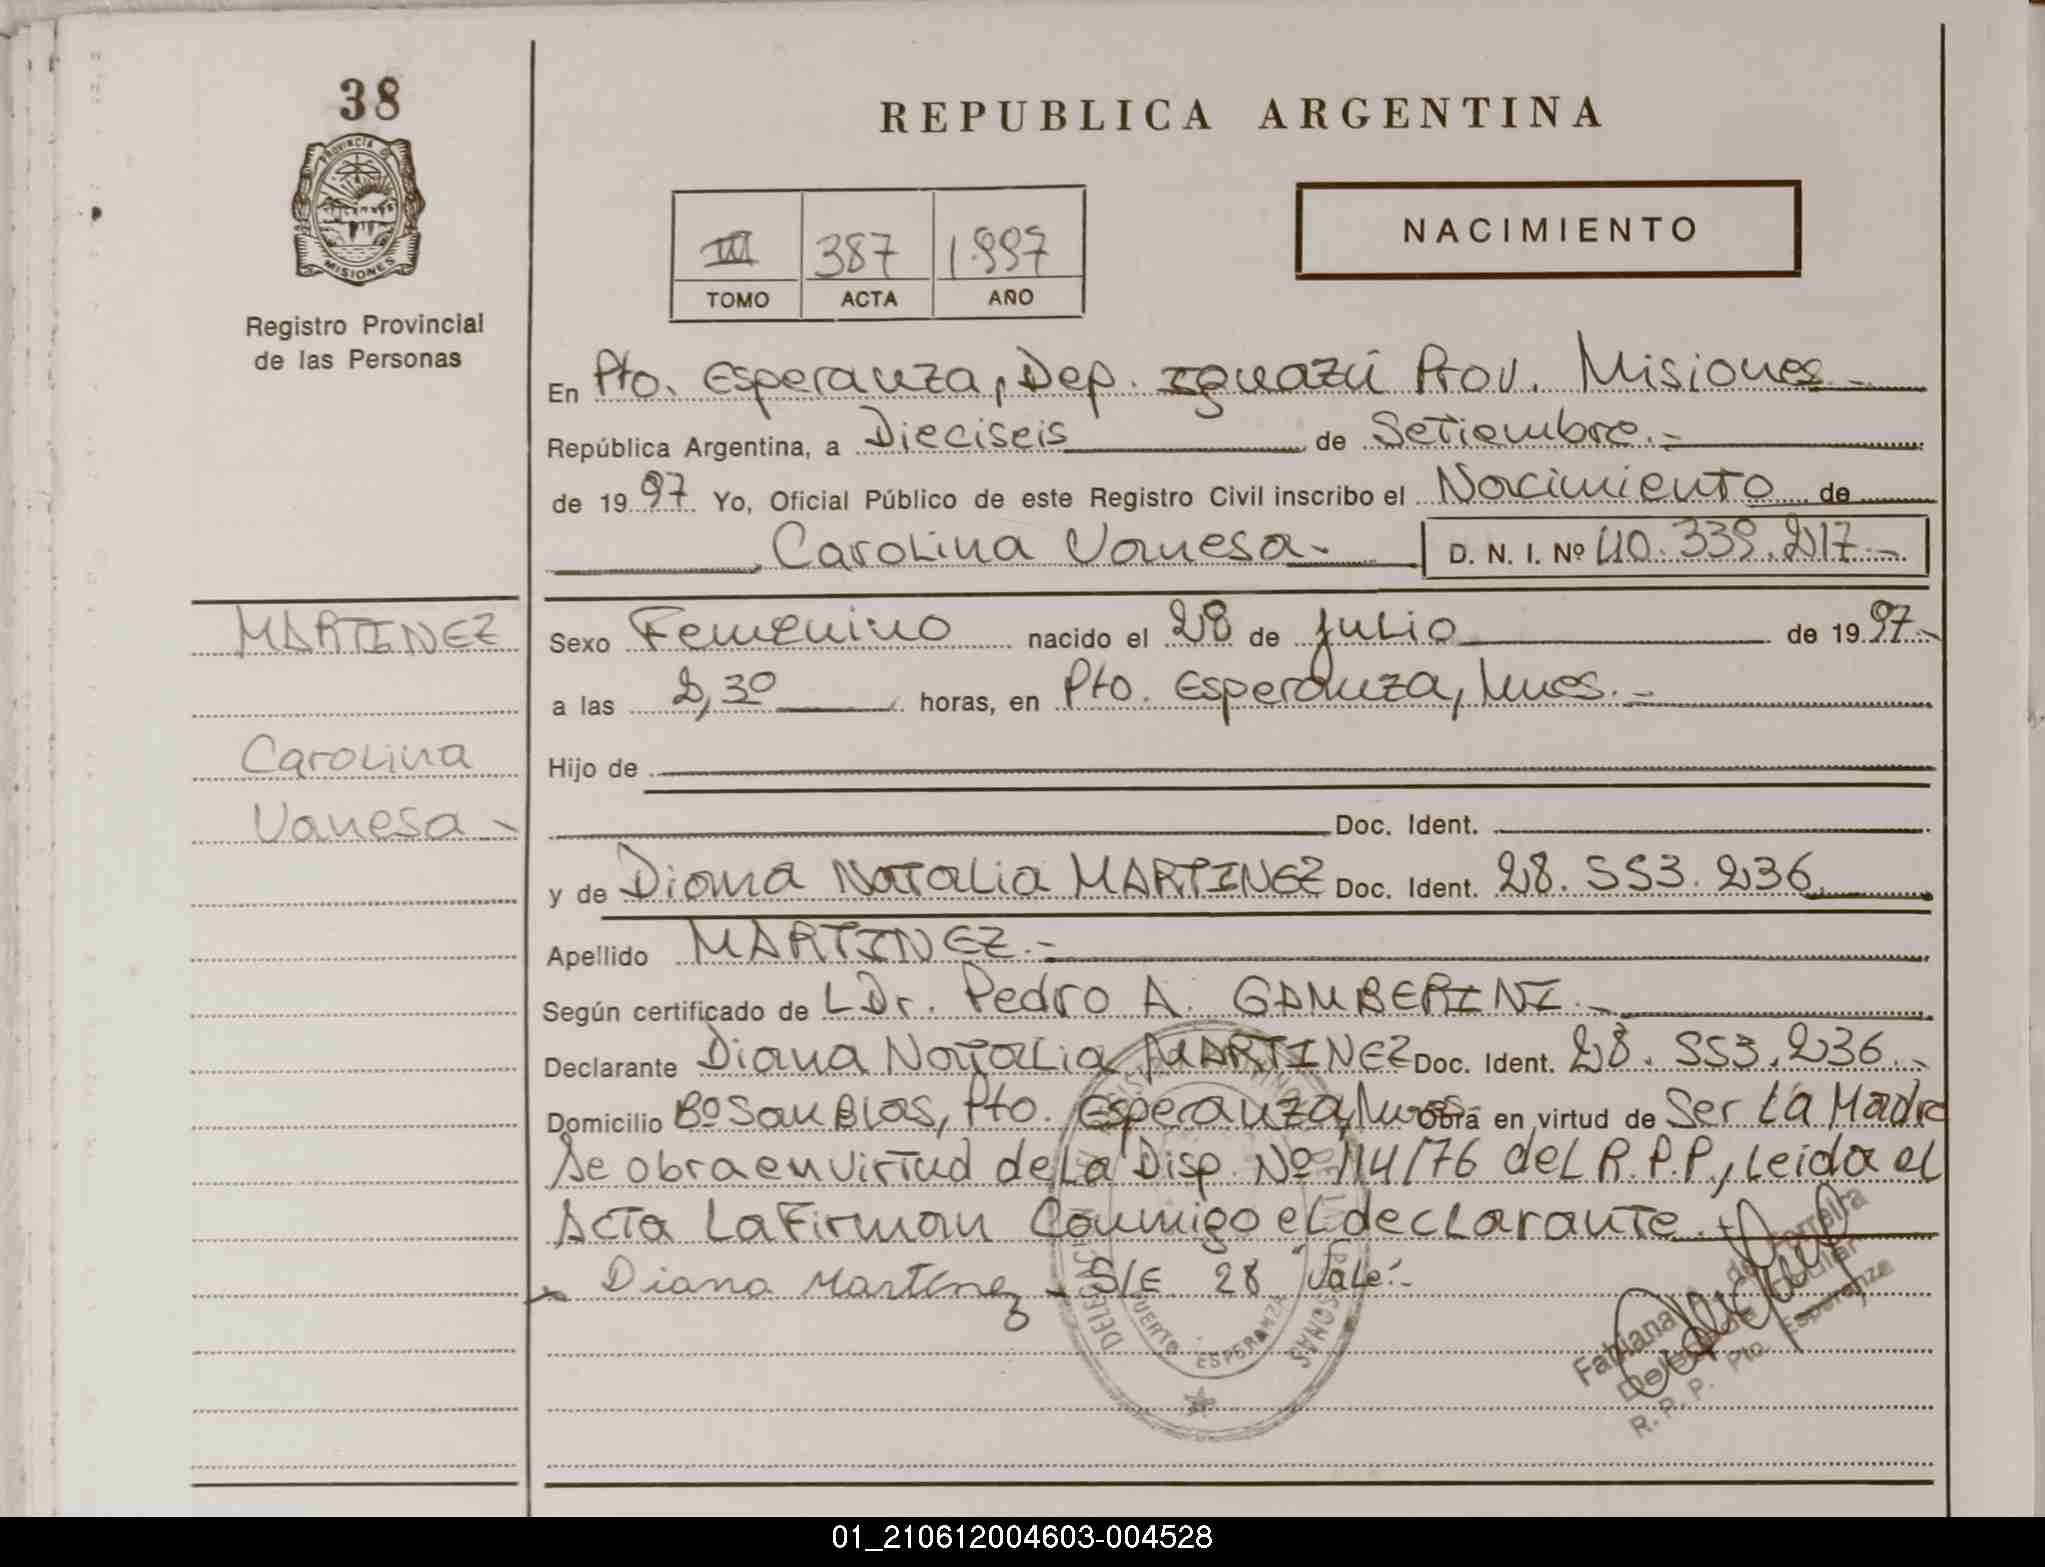 38
REPUBLICA ARGENTINA
PROVINCIA DE
MISIONES
Registro Provincial
de las Personas
III 387 1.997
TOMO ACTA AÑO
NACIMIENTO
En Pto. Esperanza, Dep. Iguazú Prov. Misiones.-
República Argentina, a Dieciseis de Setiembre.-
de 1997 Yo, Oficial Público de este Registro Civil inscribo el Nacimiento de
Carolina Vanesa.- D. N. I. Nº 40.339.217.-
MARTINEZ
Sexo Femenino nacido el 28 de Julio de 1997.-
a las 2,30 horas, en Pto. Esperanza, Mnes.-
Carolina
Hijo de
Vanesa.-
Doc. Ident.
y de Diana Natalia MARTINEZ Doc. Ident. 28.553.236
Apellido MARTINEZ.-
Según certificado de L Dr. Pedro A. GAMBERINI.-
Declarante Diana Natalia MARTINEZ Doc. Ident. 28.553.236.-
Domicilio Bº San Blas, Pto. Esperanza, Mnes Obra en virtud de Ser La Madre
Se obra en virtud de La Disp. Nº 114/76 del R.P.P., Leida el
Acta La Firman Conmigo el declarante.
Diana Martínez S/E 28 Vale.-
PUERTO ESPERANZA
Fabiana de Ferreira
R. P. P. Pto. Esperanza
01_210612004603-004528